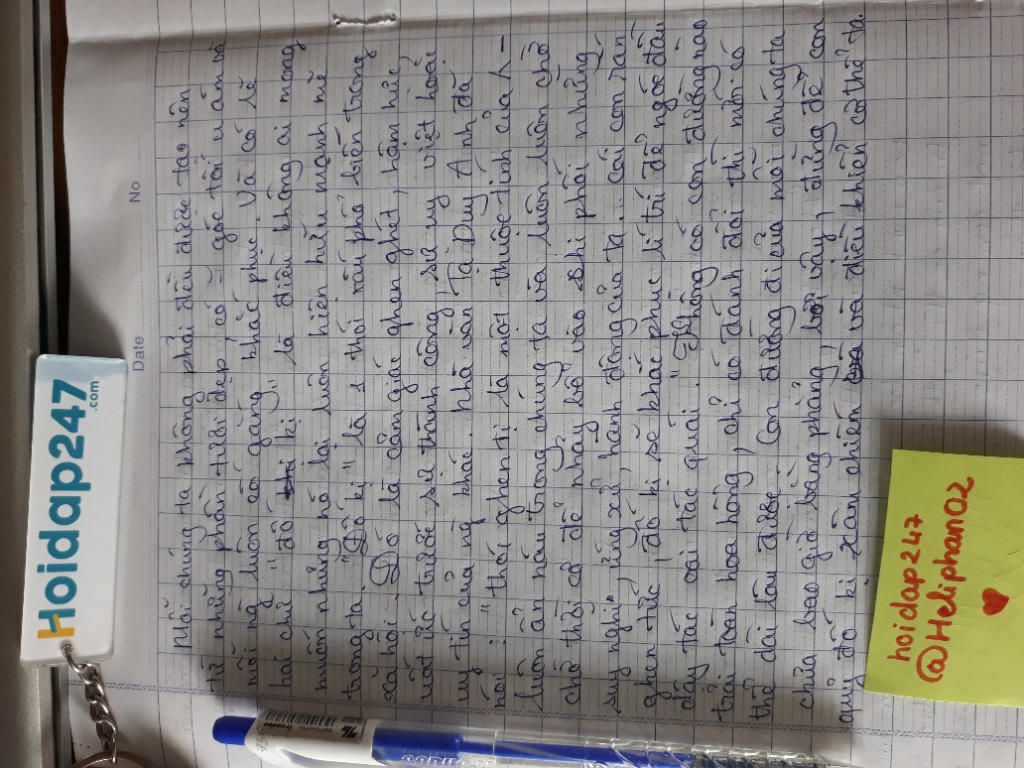 Date No
Phải chúng ta không phải đều được tạo nên
từ những phần tươi đẹp cả = góc tối u ám mà
mỗi ng luôn cố gắng khắc phục. Và có lẽ
hai chữ " đố kị" là điều không ai mong
muốn nhưng nó lại luôn hiện hữu mạnh mẽ
trong ta. "Đố kị" là 1 thói xấu phổ biến trong
xã hội. Đó là cảm giác ghen ghét, hằm hực,
uất ức trước sự thành công, sự ưu việt hoặc
uy tín của ng khác. Nhà văn Tạ Duy Anh đã
nói : " thói ghen tị là một thuộc tính của 1 -
luôn ẩn nấu trong chúng ta và luôn luôn chờ
chờ thời cơ để nhảy bổ vào chi phối những
suy nghĩ, ứng xử, hành động của ta... cái con rắn
ghen tức, đố kị sẽ khắc phục lí trí để ngóc đầu
dậy tác oai tác quái ". Không có con đường nào
trải toàn hoa hồng, chỉ có đánh đổi thì mới có
thể dài lâu được. Con đường đi của mỗi chúng ta
chưa bao giờ bằng phẳng, vậy, đừng để con
quỷ đố kị xâm chiếm và điều khiển cơ thể ta.
Hoidap247
.com
hoidap247
@Helipham02